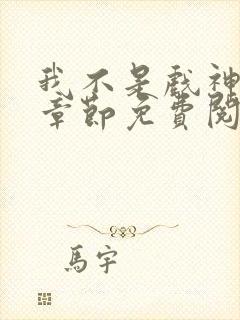 我不是戲神
章節免費閱
馬宇